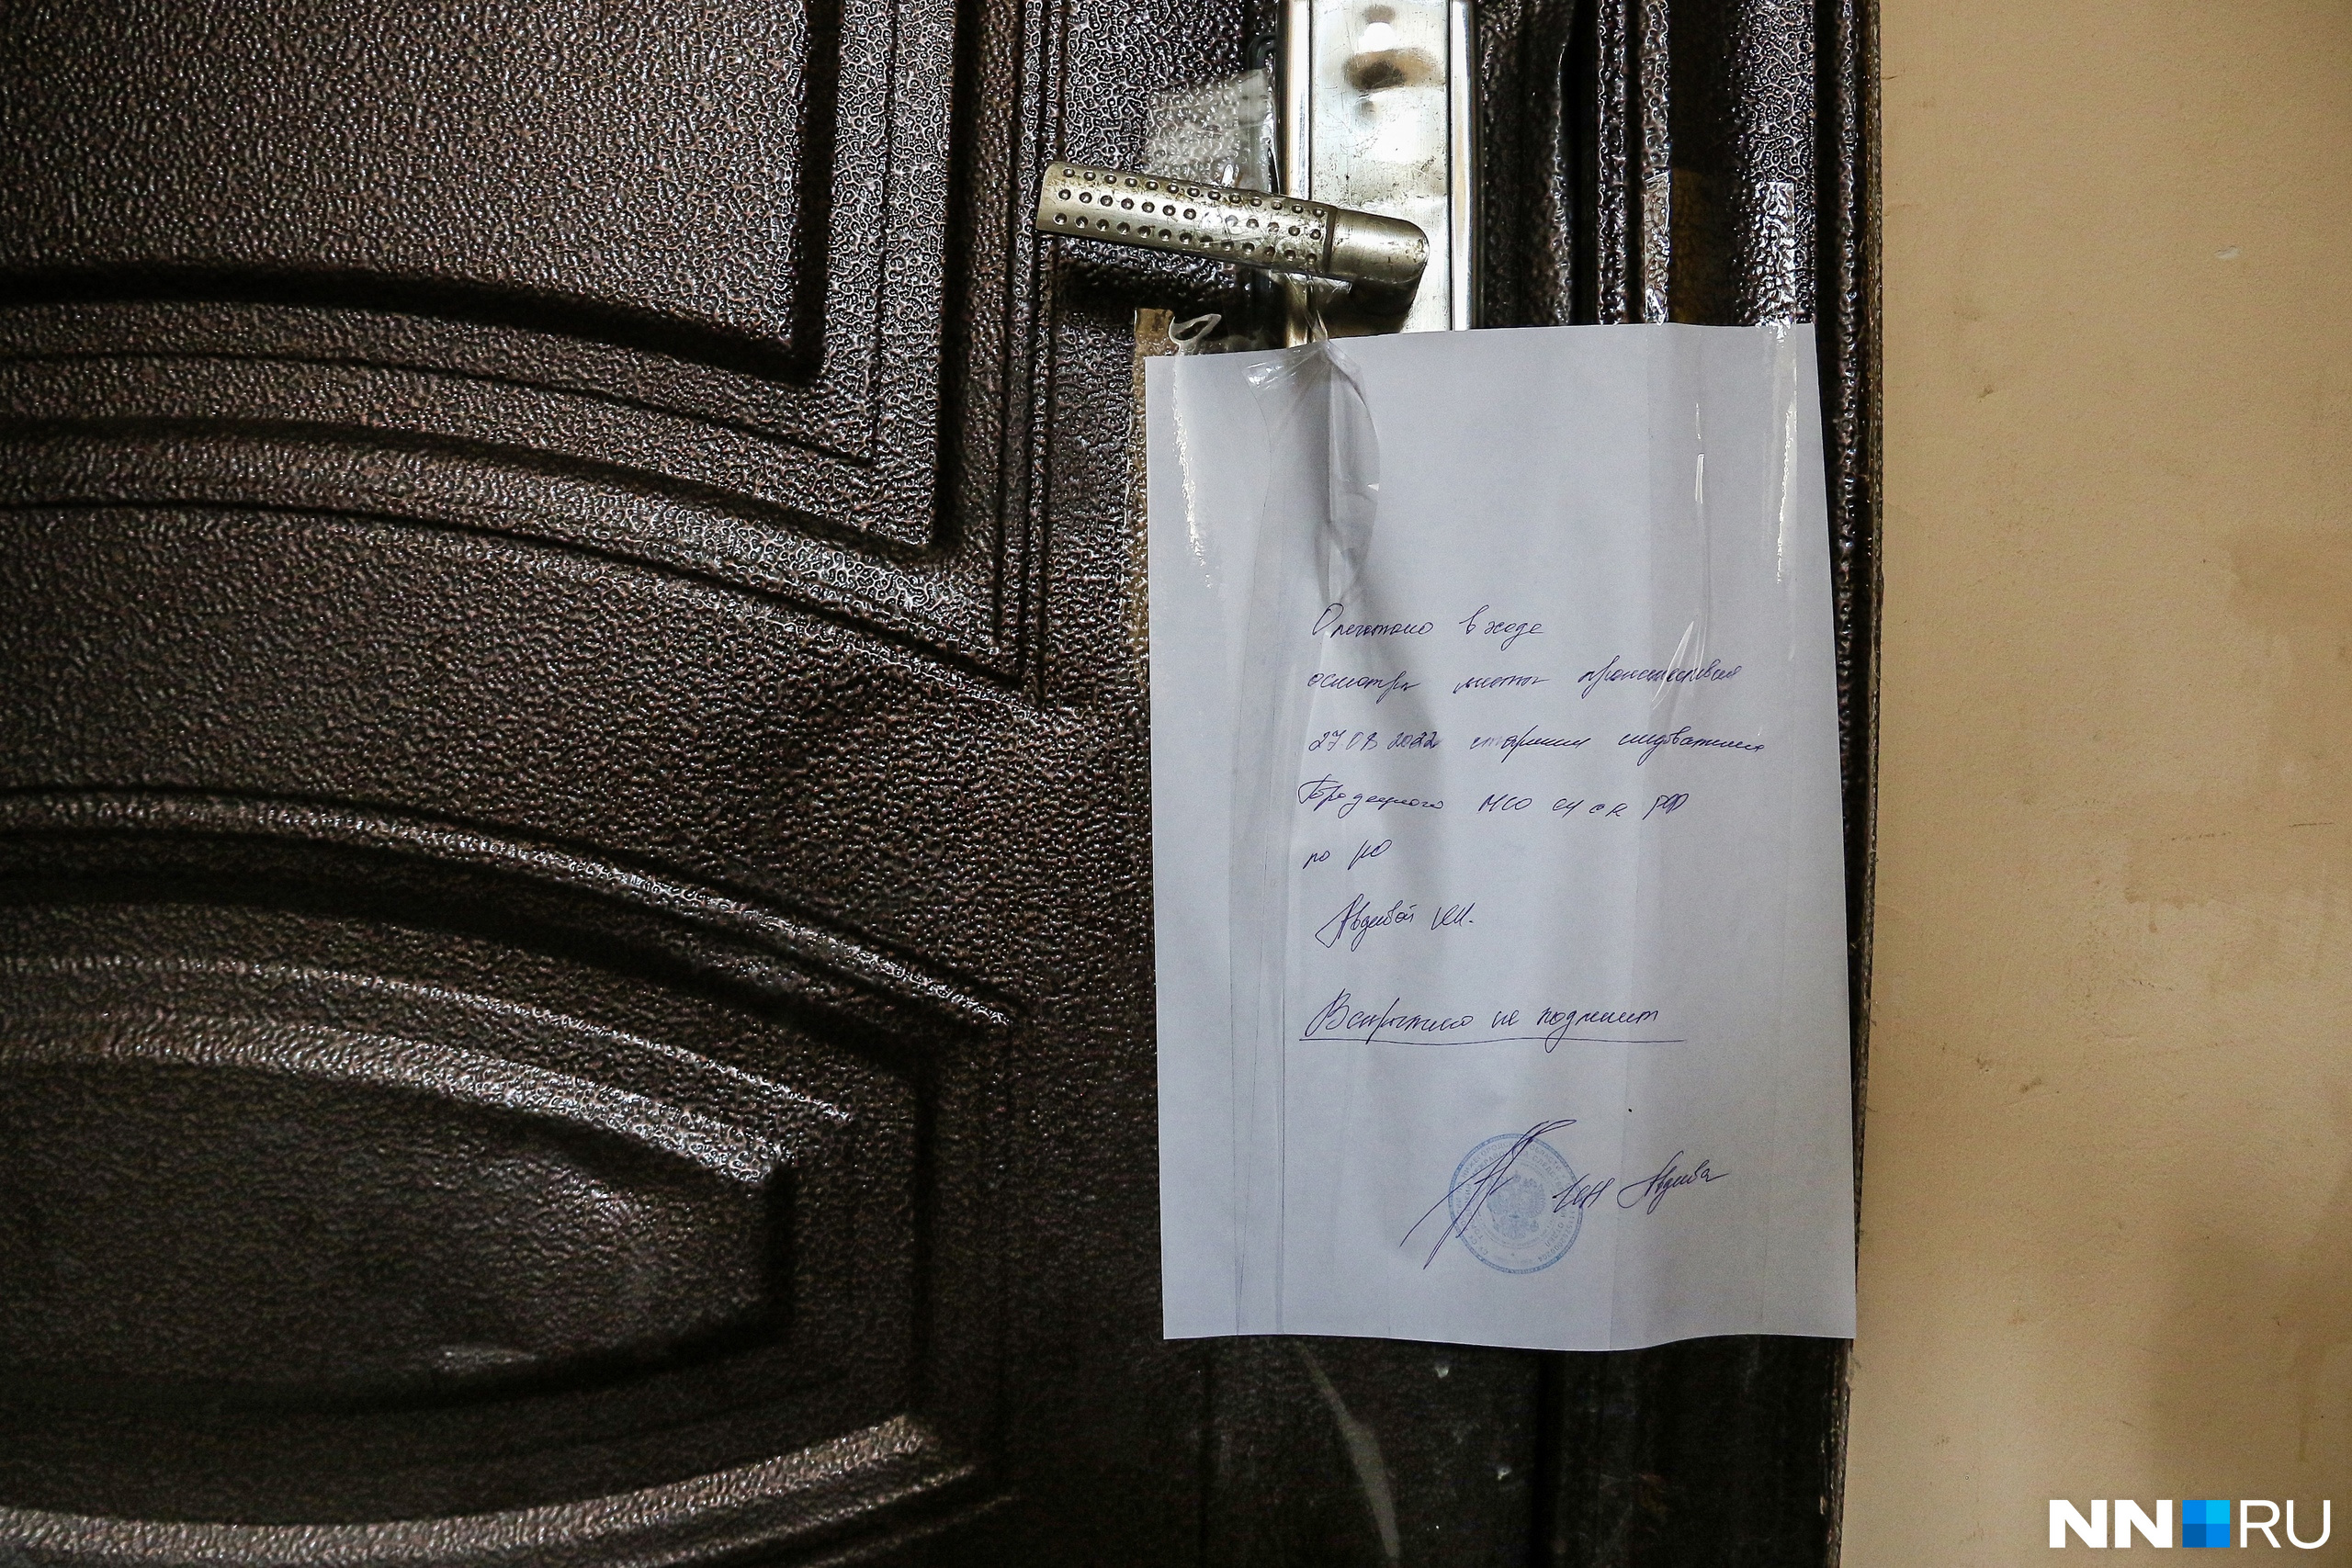 Опечатано в ходе
осмотра места происшествия
27.08.2022 старшим следователем
Городецкого МСО СУ СК РФ
по НО
Авдеевой И.Н.
Вскрытию не подлежит
Авдеева
NN RU